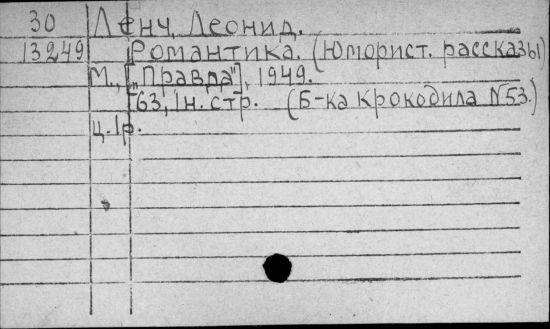 30 Ленч, Леонид.
13249 Романтика. (Юморист. рассказы)
М., ["Правда"], 1949.
63, 1н. стр. (Б-ка Крокодила N53.)
ц. 1р.